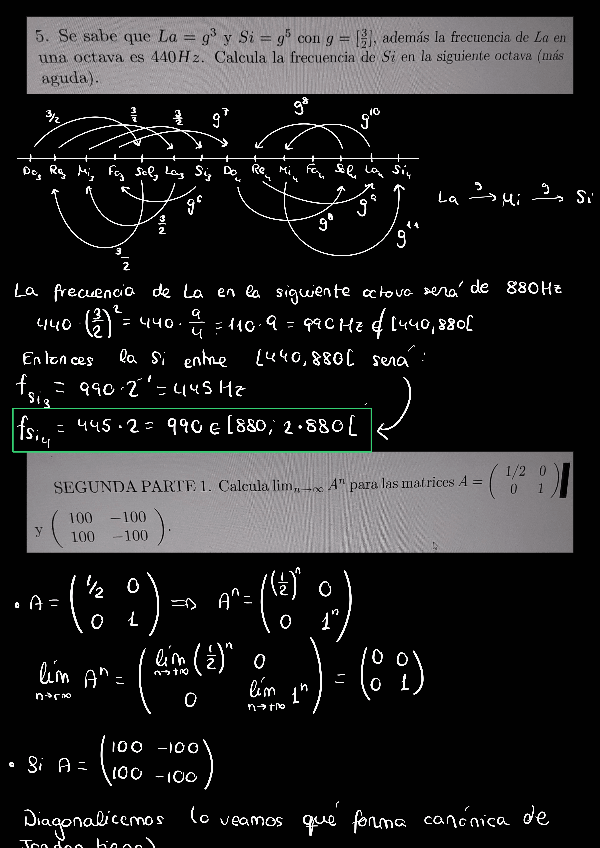 5. Se sabe que La = g³ y Si = g⁵ con g = [3/2], además la frecuencia de La en
una octava es 440Hz. Calcula la frecuencia de Si en la siguiente octava (más
aguda).
3/2 3/2 3/2 g⁷ g⁸ g¹⁰
Do₃ Re₃ Mi₃ Fa₃ Sol₃ La₃ Si₃ Do₄ Re₄ Mi₄ Fa₄ Sol₄ La₄ Si₄
La →g Mi →g Si
g⁶ 3/2 g⁸ g⁹
3/2 g¹¹
La frecuencia de La en la siguiente octava será de 880Hz
440 · (3/2)² = 440 · 9/4 = 110 · 9 = 990 Hz ∉ [440, 880[
Entonces la Si entre [440, 880[ será:
f_Si₃ = 990 · 2⁻¹ = 445 Hz
f_Si₄ = 445 · 2 = 990 ∈ [880, 2 · 880[
SEGUNDA PARTE 1. Calcula lim_{n→∞} Aⁿ para las matrices A = ( 1/2 0
0 1 )
y ( 100 −100
100 −100 ).
• A = ( 1/2 0
0 1 ) ⟹ Aⁿ = ( (1/2)ⁿ 0
0 1ⁿ )
lím_{n→+∞} Aⁿ = ( lím_{n→+∞} (1/2)ⁿ 0
0 lím_{n→+∞} 1ⁿ ) = ( 0 0
0 1 )
• Si A = ( 100 −100
100 −100 )
Diagonalicemos (o veamos qué forma canónica de
Jordan tiene)